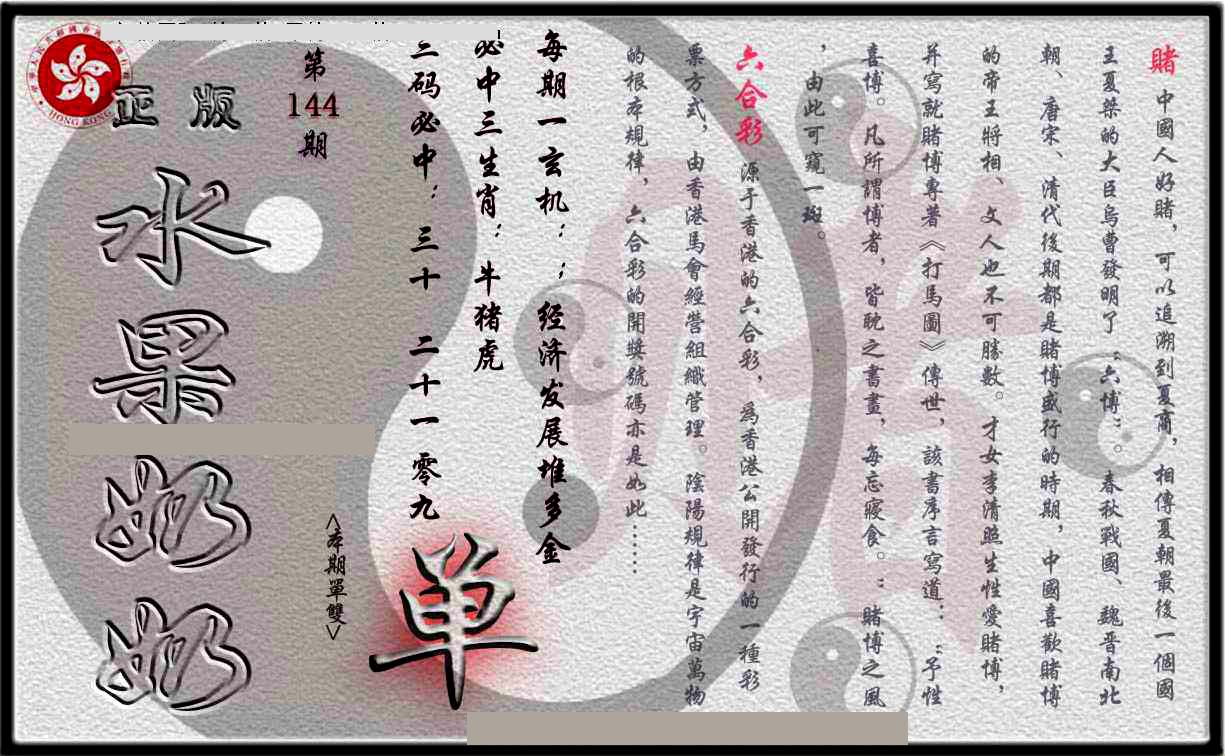 賭 中國人好賭，可以追溯到夏商，相傳夏朝最後一個國
王夏桀的大臣烏曹發明了“六博”。春秋戰國、魏晉南北
朝、唐宋、清代後期都是賭博盛行的時期，中國喜歡賭博
的帝王將相、文人也不可勝數。才女李清照生性愛賭博，
并寫就賭博專著《打馬圖》傳世，該書序言寫道：“予性
喜博。凡所謂博者，皆耽之晝夜，每忘寢食。”賭博之風
，由此可窺一斑。
六合彩 源于香港的六合彩，為香港公開發行的一種彩
票方式，由香港馬會經營組織管理。陰陽規律是宇宙萬物
的根本規律，六合彩的開獎號碼亦是如此……
每期一玄机：；经济发展堆多金
必中三生肖：牛猪虎
三码必中：三十 二十一 零九
第
144
期
正版
水果奶奶
<本期單雙>
单
HONG KONG